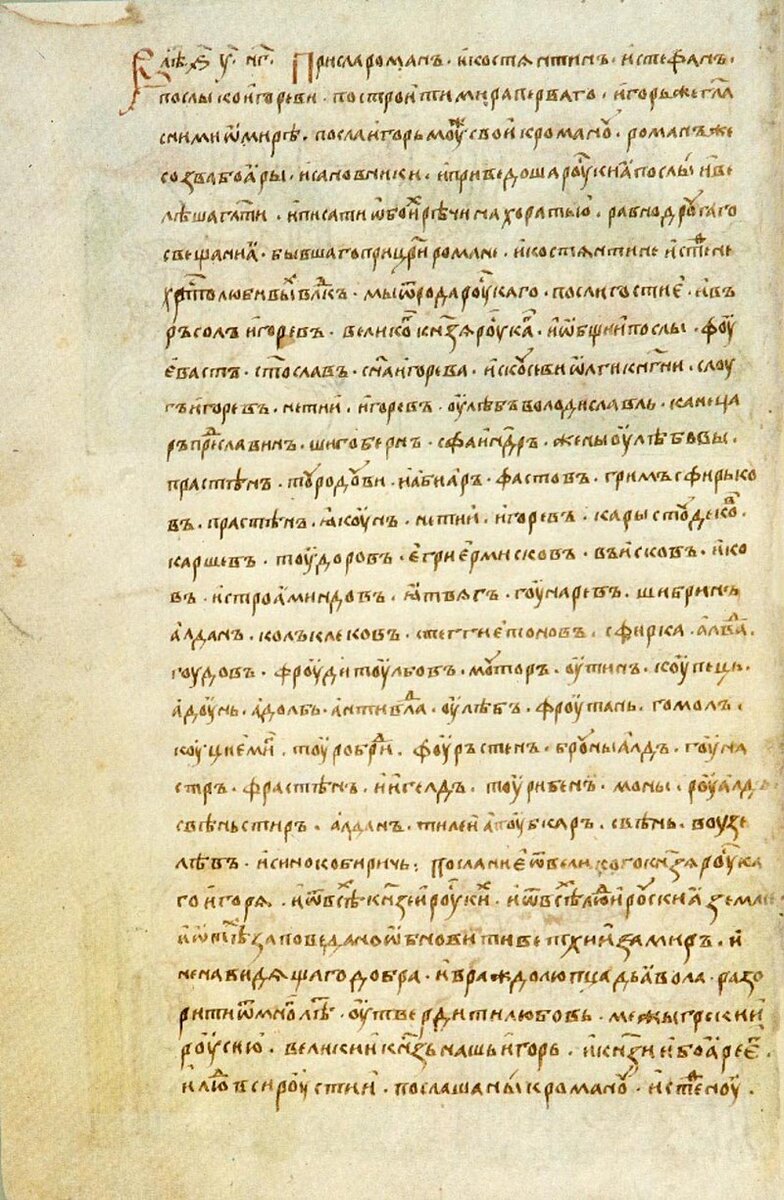 В лѣ҇т ҂ѕ҃ у҃ н҃г. Присла романъ . и костѧнтинъ . и стефанъ .
послы ко игореви . построити мира перваго . игорь же гл҃а
с ними ѡ мирѣ . посла игорь моуж свои к романоу . романъ же
созва боѧры . и сановники . и приведоша роускиꙗ послы и ве
лѣша гл҃ати . и писати ѡбоих рѣчи на хоратью . равно дроугаго
свещаниꙗ . бывшаго при цр҃и романе . и костѧнтине и стефане
хр҇столюбивых влдкъ . мы ѿ рода роускаго . посли и гостиє . ивъ
ръ солъ игоревъ . великог кнѧзѧ роускаг . и ѡбщии послы . фоу
евастъ . ст҃ославъ . сн҃а игорева . искоусеви ѡлги кн҃гни . слоу
гъ игоревъ . нетии . игоревъ . оулѣбъ володиславль . канеца
ръ предславинъ . шигобернъ . сфаиндръ . жены оулѣбовы .
прастѣнъ . тоурдоуви . либиаръ . фастовъ . гримъ сфирько
въ . прастѣнъ . ꙗкоунъ . нетии . игоревъ . кары стоудековъ .
каршевъ . тоудоровъ . єгри єрмисковъ . въисковъ . ико
въ . истро аминдовъ . ꙗтвѧгъ . гоунаревъ . шибринъ
алданъ . колъклековъ . стегги єтоновъ . сфирка . алвад .
гоудовъ . фроуди тоулбовъ . моуторъ . оутинъ . коупець .
адоунь . адолбь . антивлад . оулѣбъ . фроутань . гомолъ .
коуци ємиг . тоуробрид . фоурьстенъ . броуны алдъ . гоуна
стръ . фрастѣнъ . иигелдъ . тоурибенъ . моны . роуалдъ
свѣньстиръ . алданъ . тилеи апоубкаръ . свѣнь . воузе
лѣвъ . и синокобиричь : послание ѿ великого кнѧзѧ роуска
го игорѧ . и ѿ всѣх кнѧзеи роуских . и ѿ всѣх людии роускиꙗ земли
и ѿ тѣх заповедано ѡбновити ветхии замиръ . и
ненавидѧщаго добра . и враждолюпца дьꙗвола . разо
рити ѿ мног лѣт . оутвердити любовь . межы грекии
роусию . великии кн҃зь нашь игорь . и кн҃зи и боꙗре ег
и людие вси роустии . послаша ны к романоу . и стефеноу .